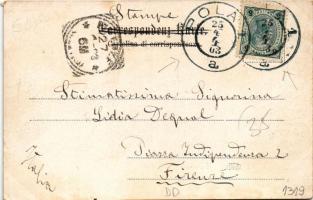 Stampe
Correspondenz-Karte.
Cartolina di corrispondenza
POLA
25
4
03
a
Stimatissima Signorina
Lidia Dequal
Piazza Indipendenza 2
Firenze
Italia
DD
1319